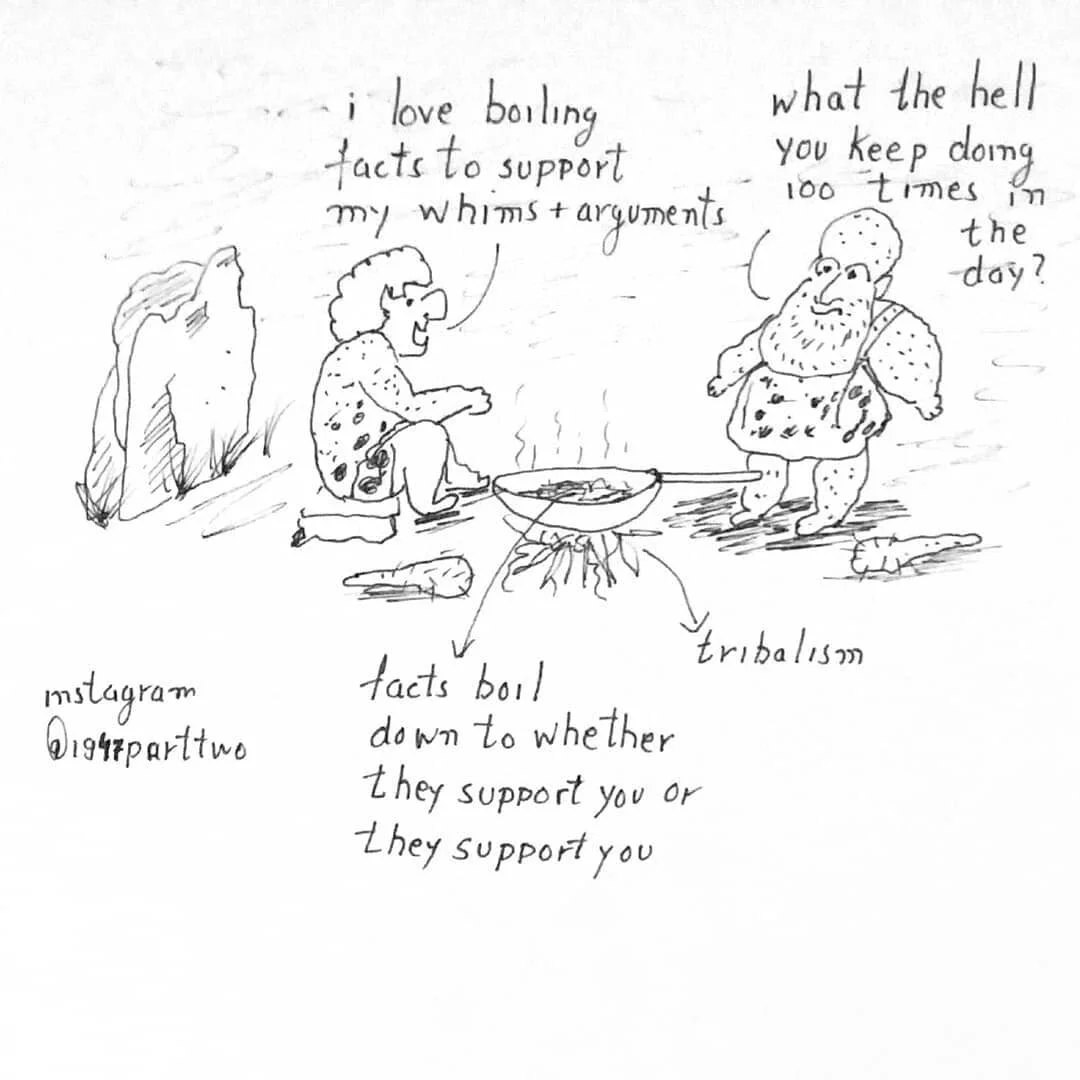 what the hell
you keep doing
100 times in
the
day?
i love boiling
facts to support
my whims + arguments
tribalism
facts boil
down to whether
they support you or
they support you
instagram
@1947parttwo